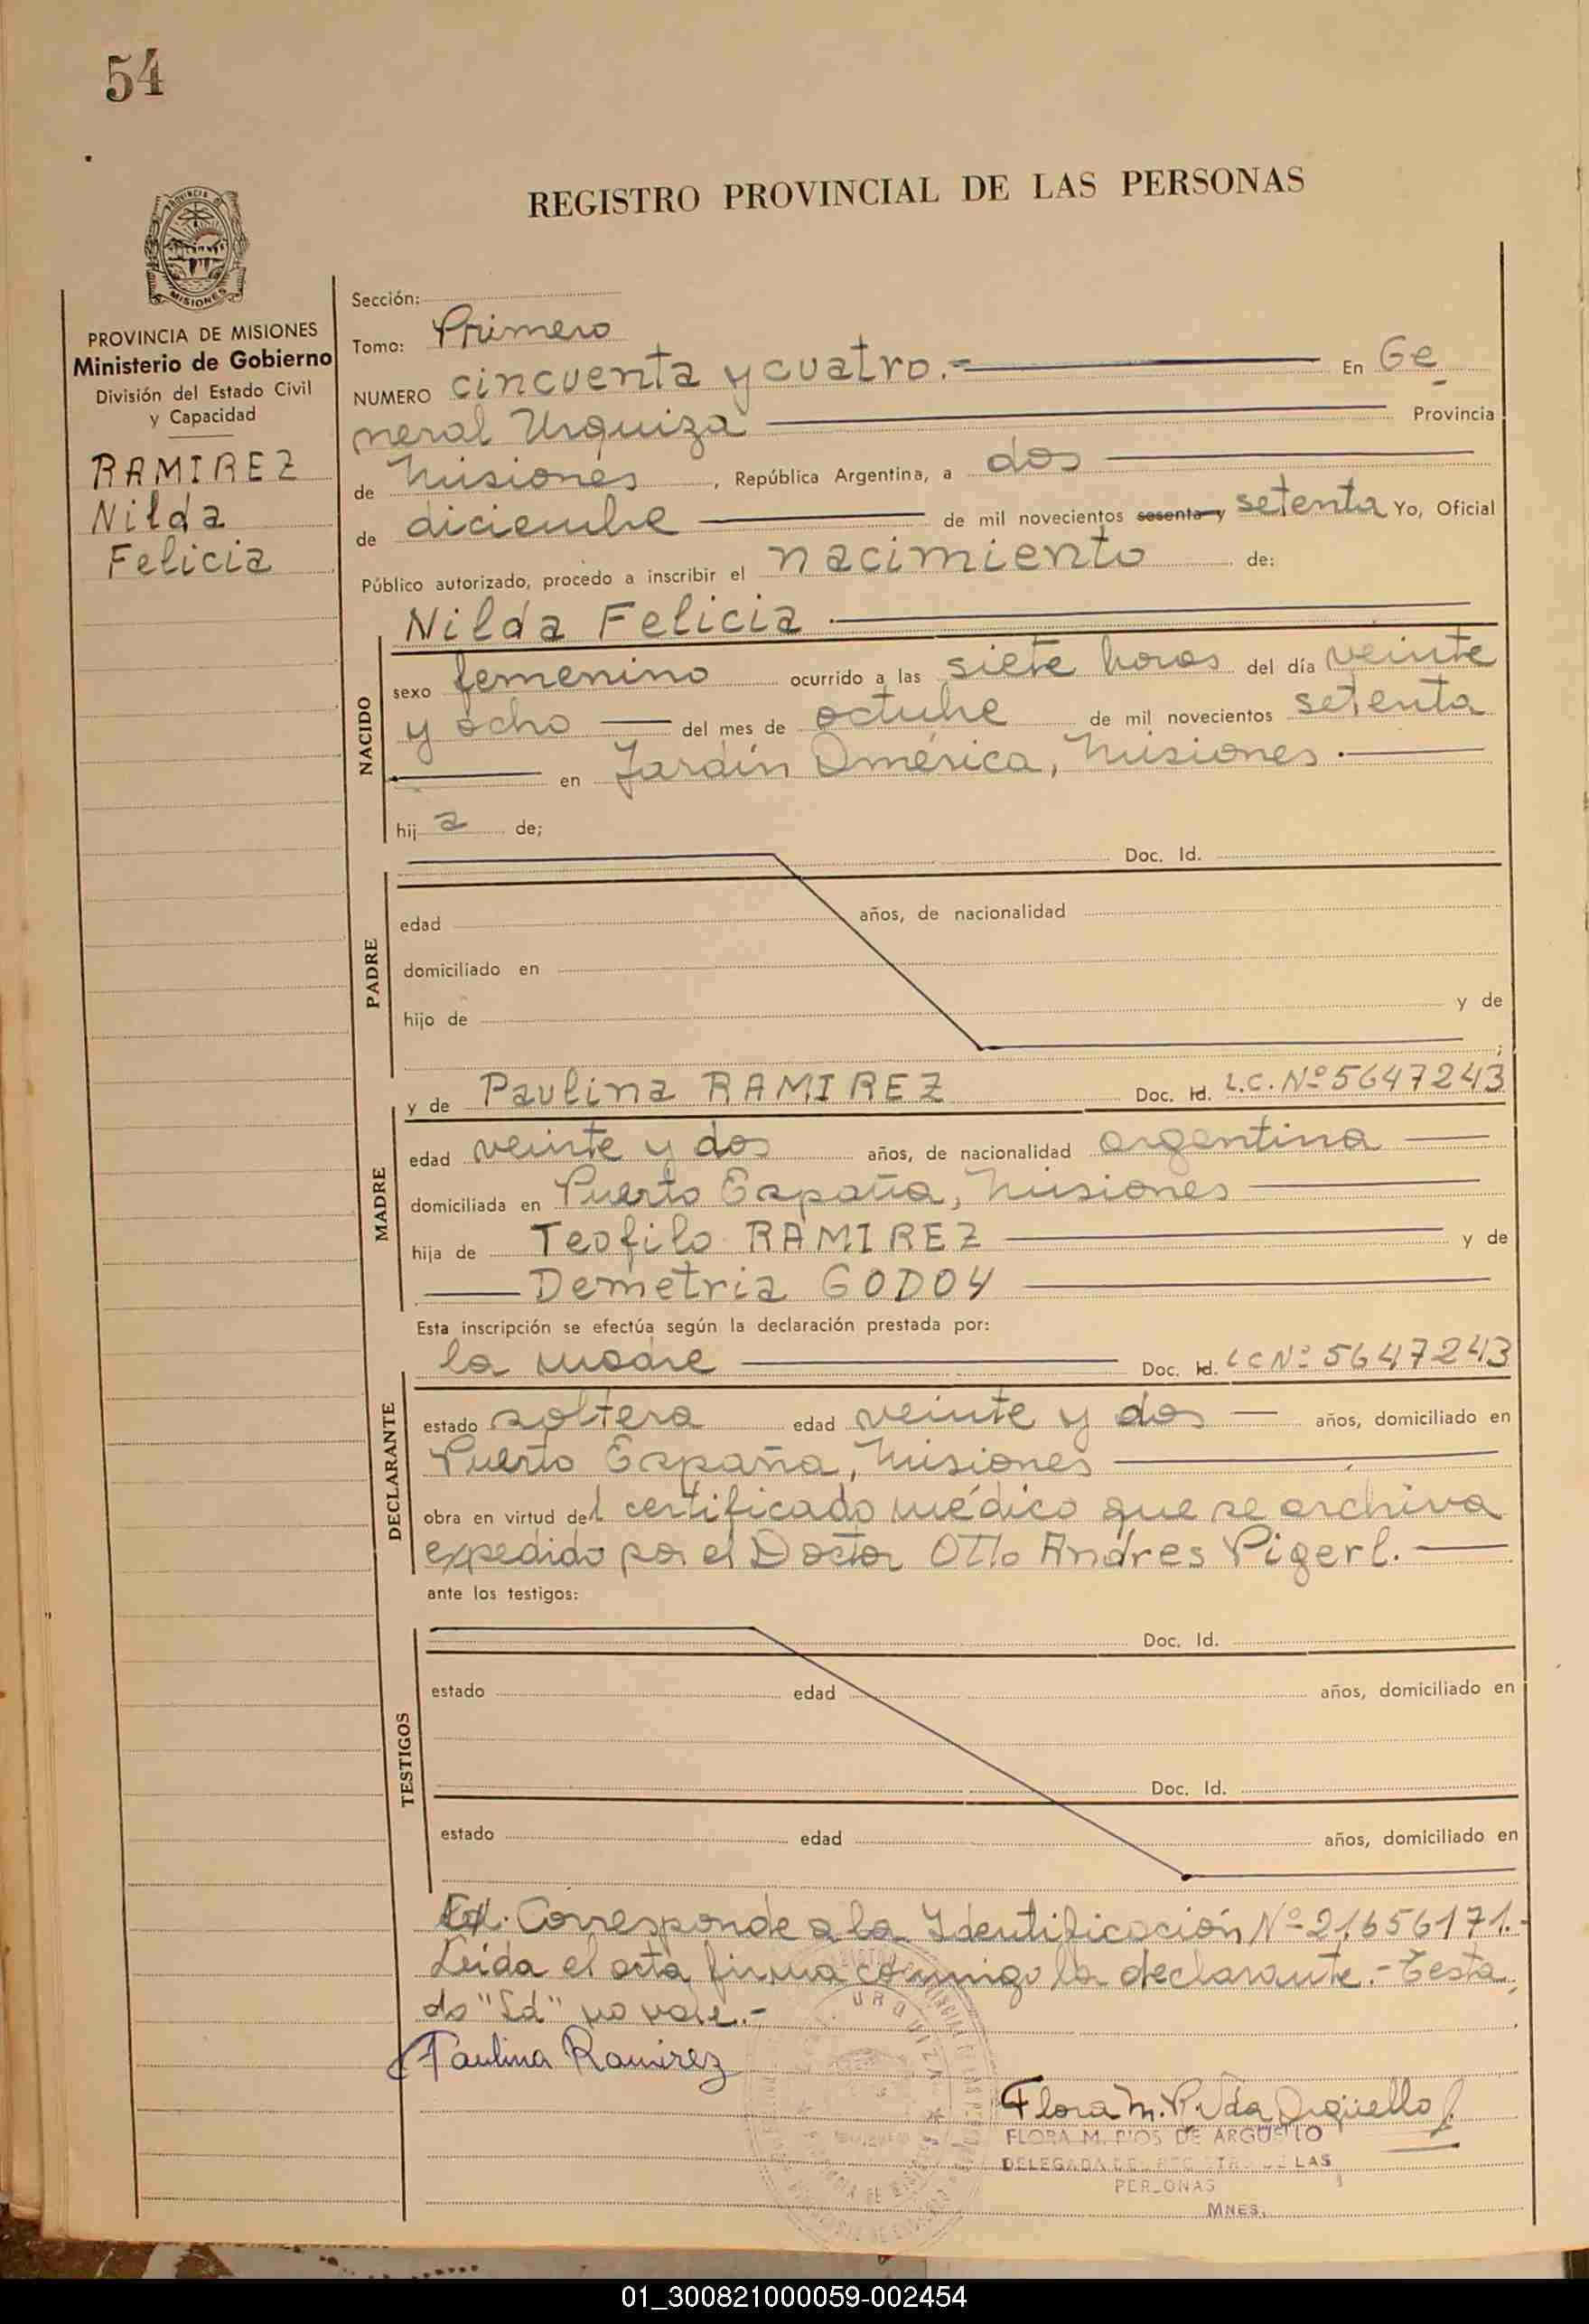 54
REGISTRO PROVINCIAL DE LAS PERSONAS
PROVINCIA
MISIONES
PROVINCIA DE MISIONES
Ministerio de Gobierno
División del Estado Civil
y Capacidad
RAMIREZ
Nilda
Felicia
Sección:
Tomo: Primero
NUMERO cincuenta y cuatro.- En Ge
neral Urquiza Provincia
de Misiones, República Argentina, a dos
de diciembre de mil novecientos sesenta y setenta Yo, Oficial
Público autorizado, procedo a inscribir el nacimiento de:
Nilda Felicia
NACIDO
sexo femenino ocurrido a las siete horas del día veinte
y ocho del mes de octubre de mil novecientos setenta
en Jardín América, Misiones.
hij a de;
PADRE
Doc. Id.
edad años, de nacionalidad
domiciliado en
hijo de y de
;
MADRE
y de Paulina RAMIREZ Doc. Id. L.C. Nº 5647243
edad veinte y dos años, de nacionalidad argentina
domiciliada en Puerto España, Misiones
hija de Teofilo RAMIREZ y de
Demetria GODOY
Esta inscripción se efectúa según la declaración prestada por:
DECLARANTE
la madre Doc. Id. LC Nº 5647243
estado soltera edad veinte y dos años, domiciliado en
Puerto España, Misiones
obra en virtud del certificado médico que se archiva
expedido por el Doctor Otto Andres Pigerl.
ante los testigos:
TESTIGOS
Doc. Id.
estado edad años, domiciliado en
Doc. Id.
estado edad años, domiciliado en
Corresponde a la Identificación Nº 21.656.171.-
Leída el acta firma conmigo la declarante.- Testa
do "Id" no vale.-
Paulina Ramirez
URQUIZA
Flora M. R. Vda Argüello
FLORA M. RIOS DE ARGUELLO
DELEGADA DEL REGISTRO DE LAS
PERSONAS
MNES.
01_300821000059-002454